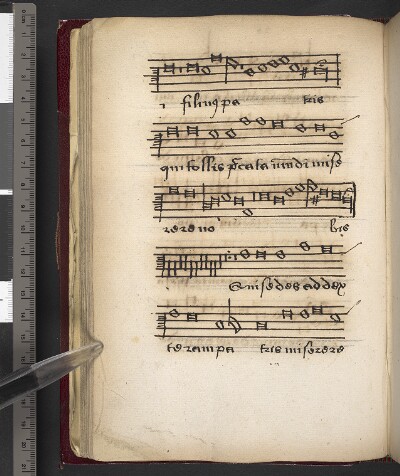 i filius pa tris
qui tollis pcata mundi mise
rere no bis
Qui sedes ad dex
te ram pa tris miserere